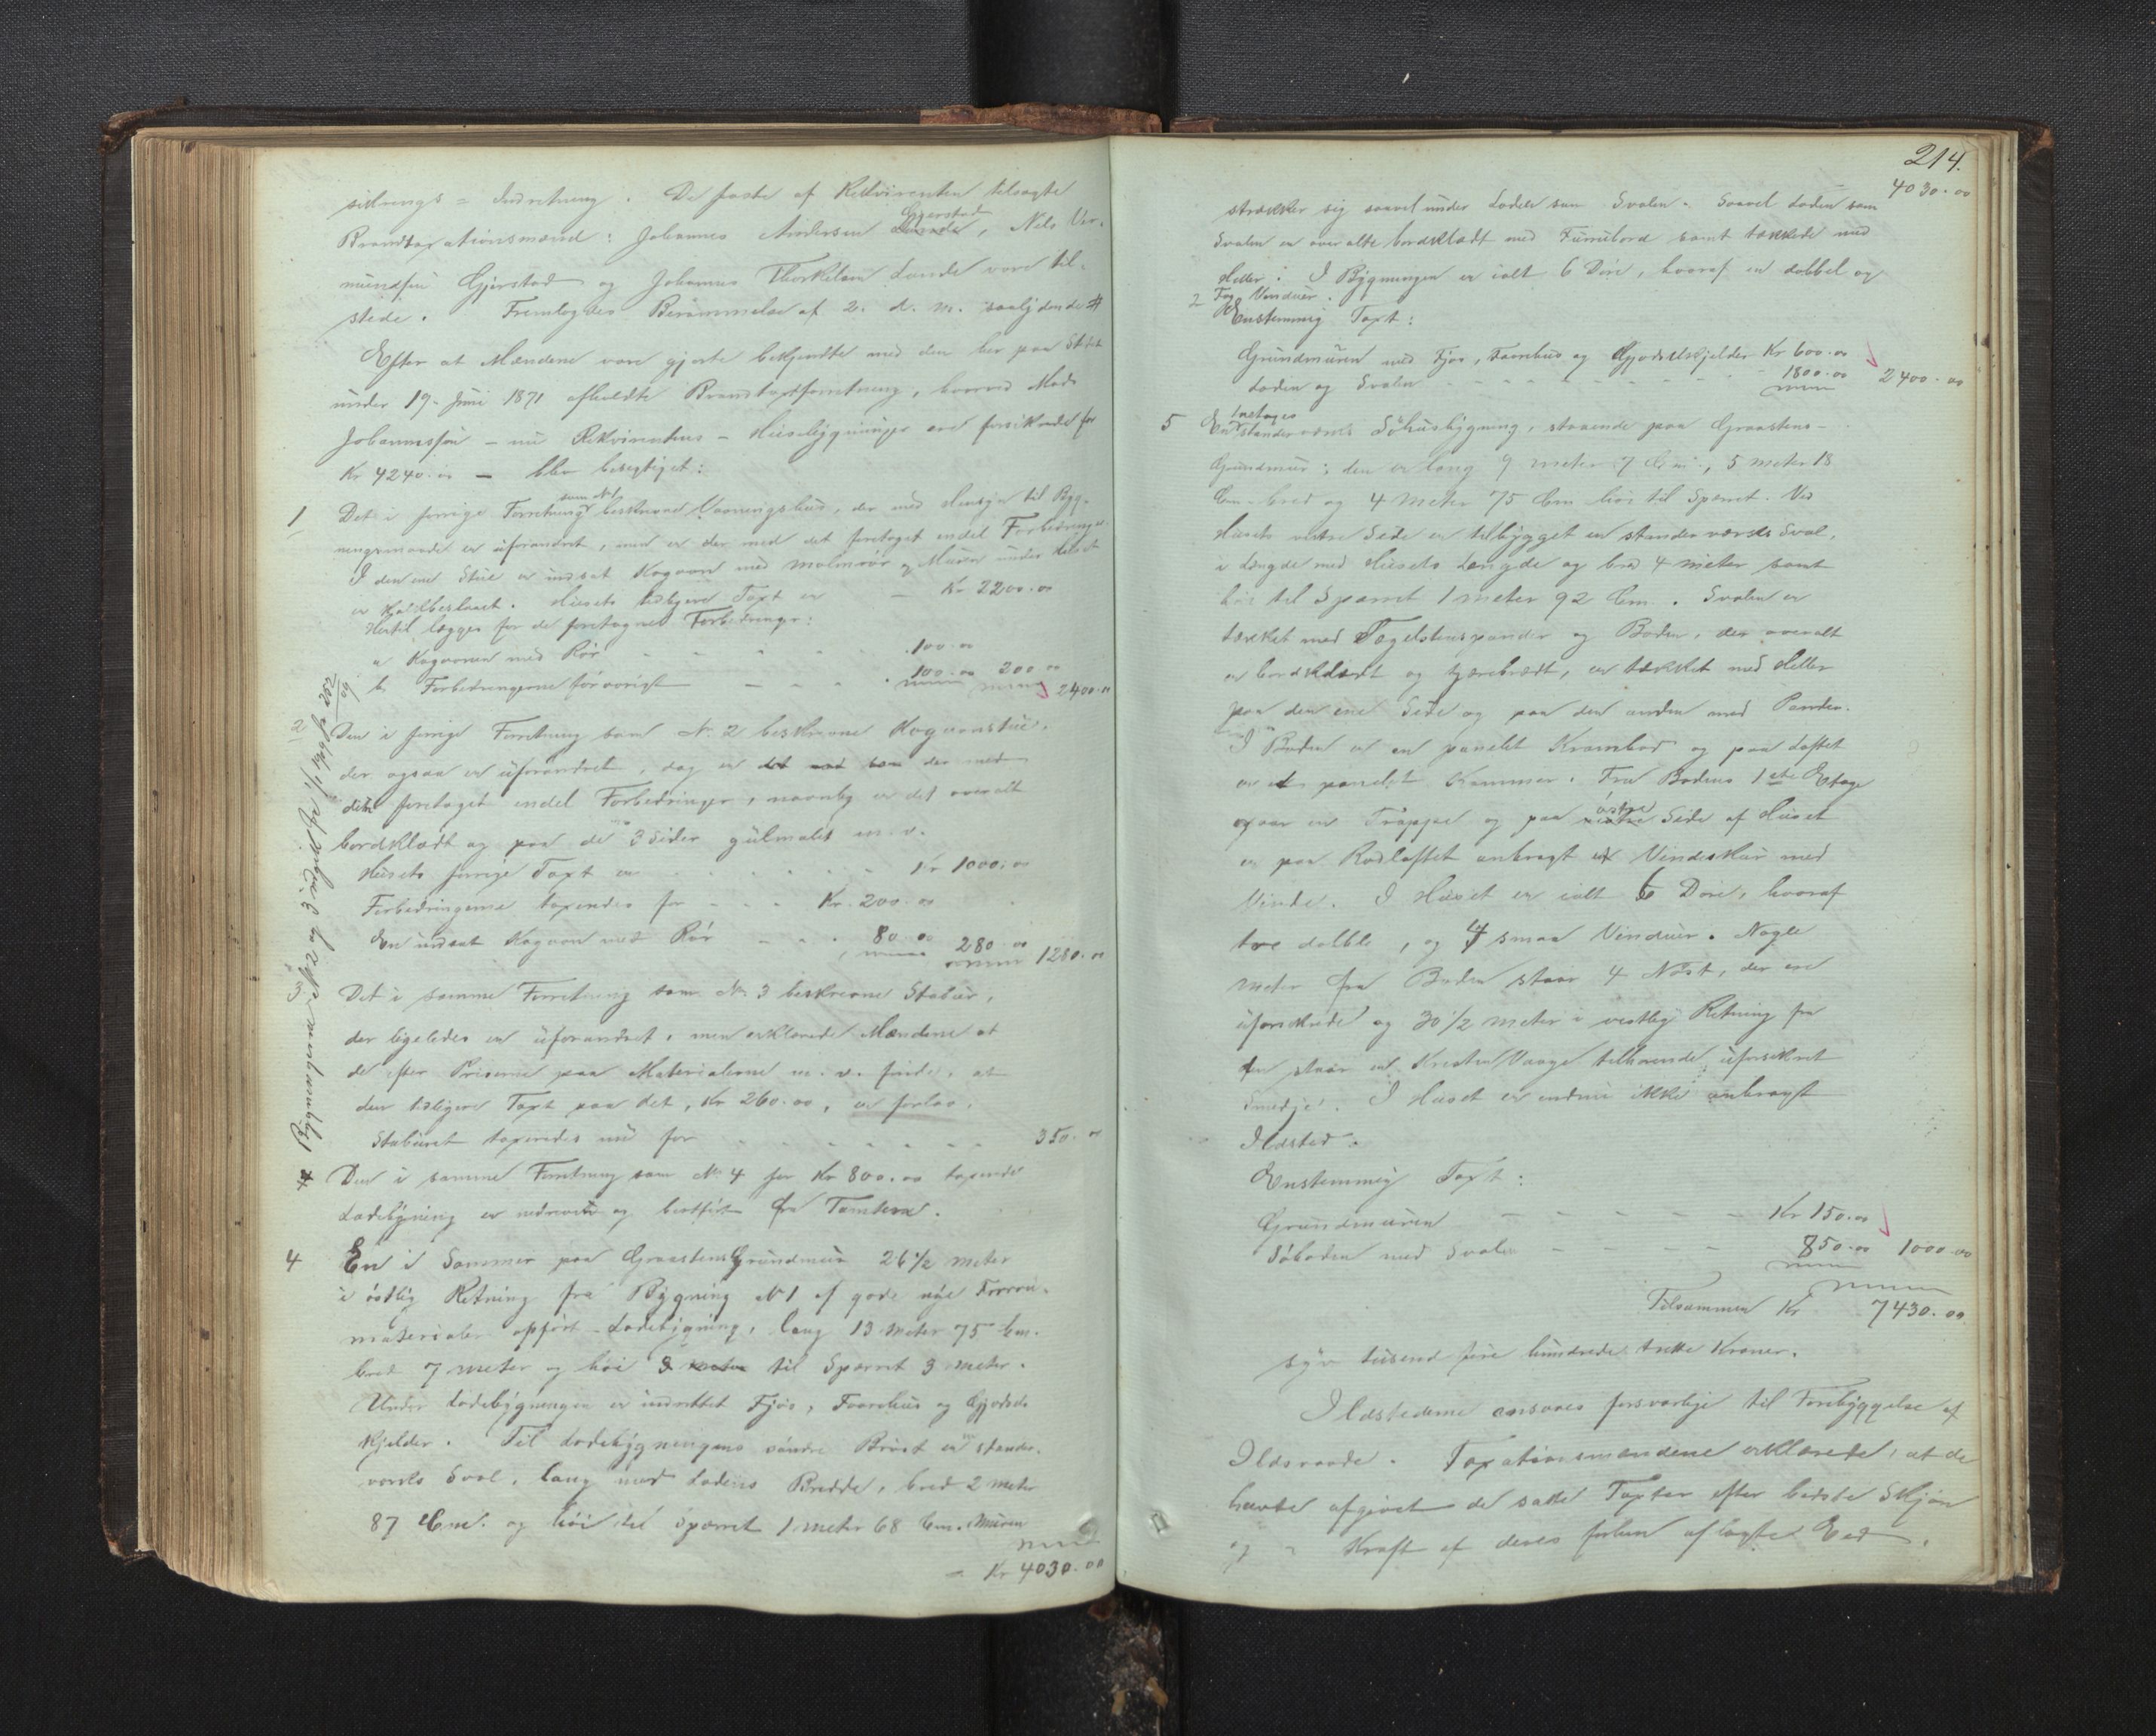 sikrings=Indretning. De faste af Rekvirenten tilsagte
Brandtaxationsmænd: Johannes Andersen Lunde Gjerstad, Nils Ver-
mundsøn Gjerstad og Johannes Thorkelsen Lunde vare til-
stede. Fremlagdes Berammelse af 2. d. M. saalydende #
Efter at Mændene vare gjorte bekjendte med den her paa Stedet
under 19. Juni 1871 afholdte Brandtaxtforretning, hvorved Mads
Johannessøn - nu Rekvirentens - Husebygninger ere forsikrede for
Kr 4240.00 - blev besigtiget:
1 Det i forrige Forretning som No 1 beskrevne Vaaningshus, der med Hensyn til Byg-
ningsmaade er uforandret, men er der med det foretaget endel Forbedringer.
I den ene Stue er indsat Kogovn med Malmrør og Muren under Huset
er kalkbeslaaet. Husets tidligere Taxt er - Kr 2200.00
Hertil lægges for de foretagne Forbedringer:
a Kogovnen med Rør - - - 100.00
b Forbedringerne forøvrigt - - - 100.00 200.00 2400.00
2 Den i forrige Forretning som No 2 beskrevne Kogovnstue,
der ogsaa er uforandret, dog er der med
den foretaget endel Forbedringer, navnlig er det overalt
bordklædt og paa de 3 Sider gulmalet m.v.
Husets forrige Taxt er - - - Kr 1000.00
Forbedringerne taxeredes for - - - Kr. 200.00
En indsat Kogovn med Rør - - - 80.00 280.00 1280.00
3 Det i samme Forretning som No 3 beskrevne Stabur,
der ligeledes er uforandret, men erklærede Mændene at
de efter Priserne paa Materialerne m.v. finde, at
den tidligere Taxt paa det, Kr 260.00, er forlav.
Staburet taxeredes nu for - - - 350.00
Den i samme Forretning som No 4 for Kr 800.00 taxerede
Ladebygning er nedrevet og bortført fra Tomten.
4 En i Sommer paa Graastens Grundmur 26 1/2 Meter
i østlig Retning fra Bygning No 1 af gode nye Furru-
materialer opført Ladebygning, lang 13 Meter 75 Cm.
bred 7 Meter og høi 3 Meter til Sparret 3 Meter.
Under Ladebygningen er indrettet Fjøs, Faarehus og Gjødsels
Kjelder. Til Ladebygningens søndre Brøst er en stander-
værks Sval, lang med Ladens Bredde, bred 2 Meter
87 Cm. og høi til Sparret 1 Meter 68 Cm. Muren
Kr 4030.00
214.
4030.00
strækker sig saavel under Laden som Svalen. Saavel Laden som
Svalen er overalt bordklædt med Furrubord samt tækkede med
Heller. I Bygningen er ialt 6 Døre, hvoraf en dobbel og
2 Fag Vinduer.
Enstemmig Taxt:
Grundmuren med Fjøs, Faarehus og Gjødselskjelder Kr 600.00
Laden og Svalen - - - 1800.00 2400.00
5 En 1 etages standerværks Søhusbygning, staaende paa Graastens-
Grundmur; den er lang 9 Meter 7 Cm., 5 Meter 18
Cm. bred og 4 Meter 75 Cm høi til Sparret. Ved
Husets vestre Side er tilbygget en standerværks Sval,
i Længde med Husets Længde og bred 4 Meter samt
høi til Sparret 1 Meter 92 Cm. Svalen er
tækket med Tegelstenspander og Boden, der overalt
er bordklædt og tjærebrædt, er tækket med Heller
paa den ene Side og paa den anden med Pander.
I Boden er en panelet Krambod og paa Loftet
er et panelet Kammer. Fra Bodens 1ste Etage
gaar en Trappe og paa østre Side af Huset
er paa Rodloftet anbragt et Vindeskur med
Vinde. I Huset er ialt 6 Døre, hvoraf
tre dobble, og 4 smaa Vinduer. Nogle
Meter fra Boden staar 4 Nøst, der ere
uforsikrede og 30 1/2 Meter i vestlig Retning fra
den staar en Kristen Vaage tilhørende uforsikret
Smedje. I Huset er endnu ikke anbragt
Ildsted.
Enstemmig Taxt:
Grundmuren - - - Kr 150.00
Søboden med Svalen - - - 850.00 1000.00
Tilsammen Kr 7430.00
syv tusend fire hundrede trette Kroner.
Ildstederne ansaaes forsvarlige til Forebyggelse af
Ildsvaade. Taxationsmændene erklærede, at de
havde afgivet de satte Taxter efter bedste Skjøn
og i Kraft af deres forhen aflagte Eed.